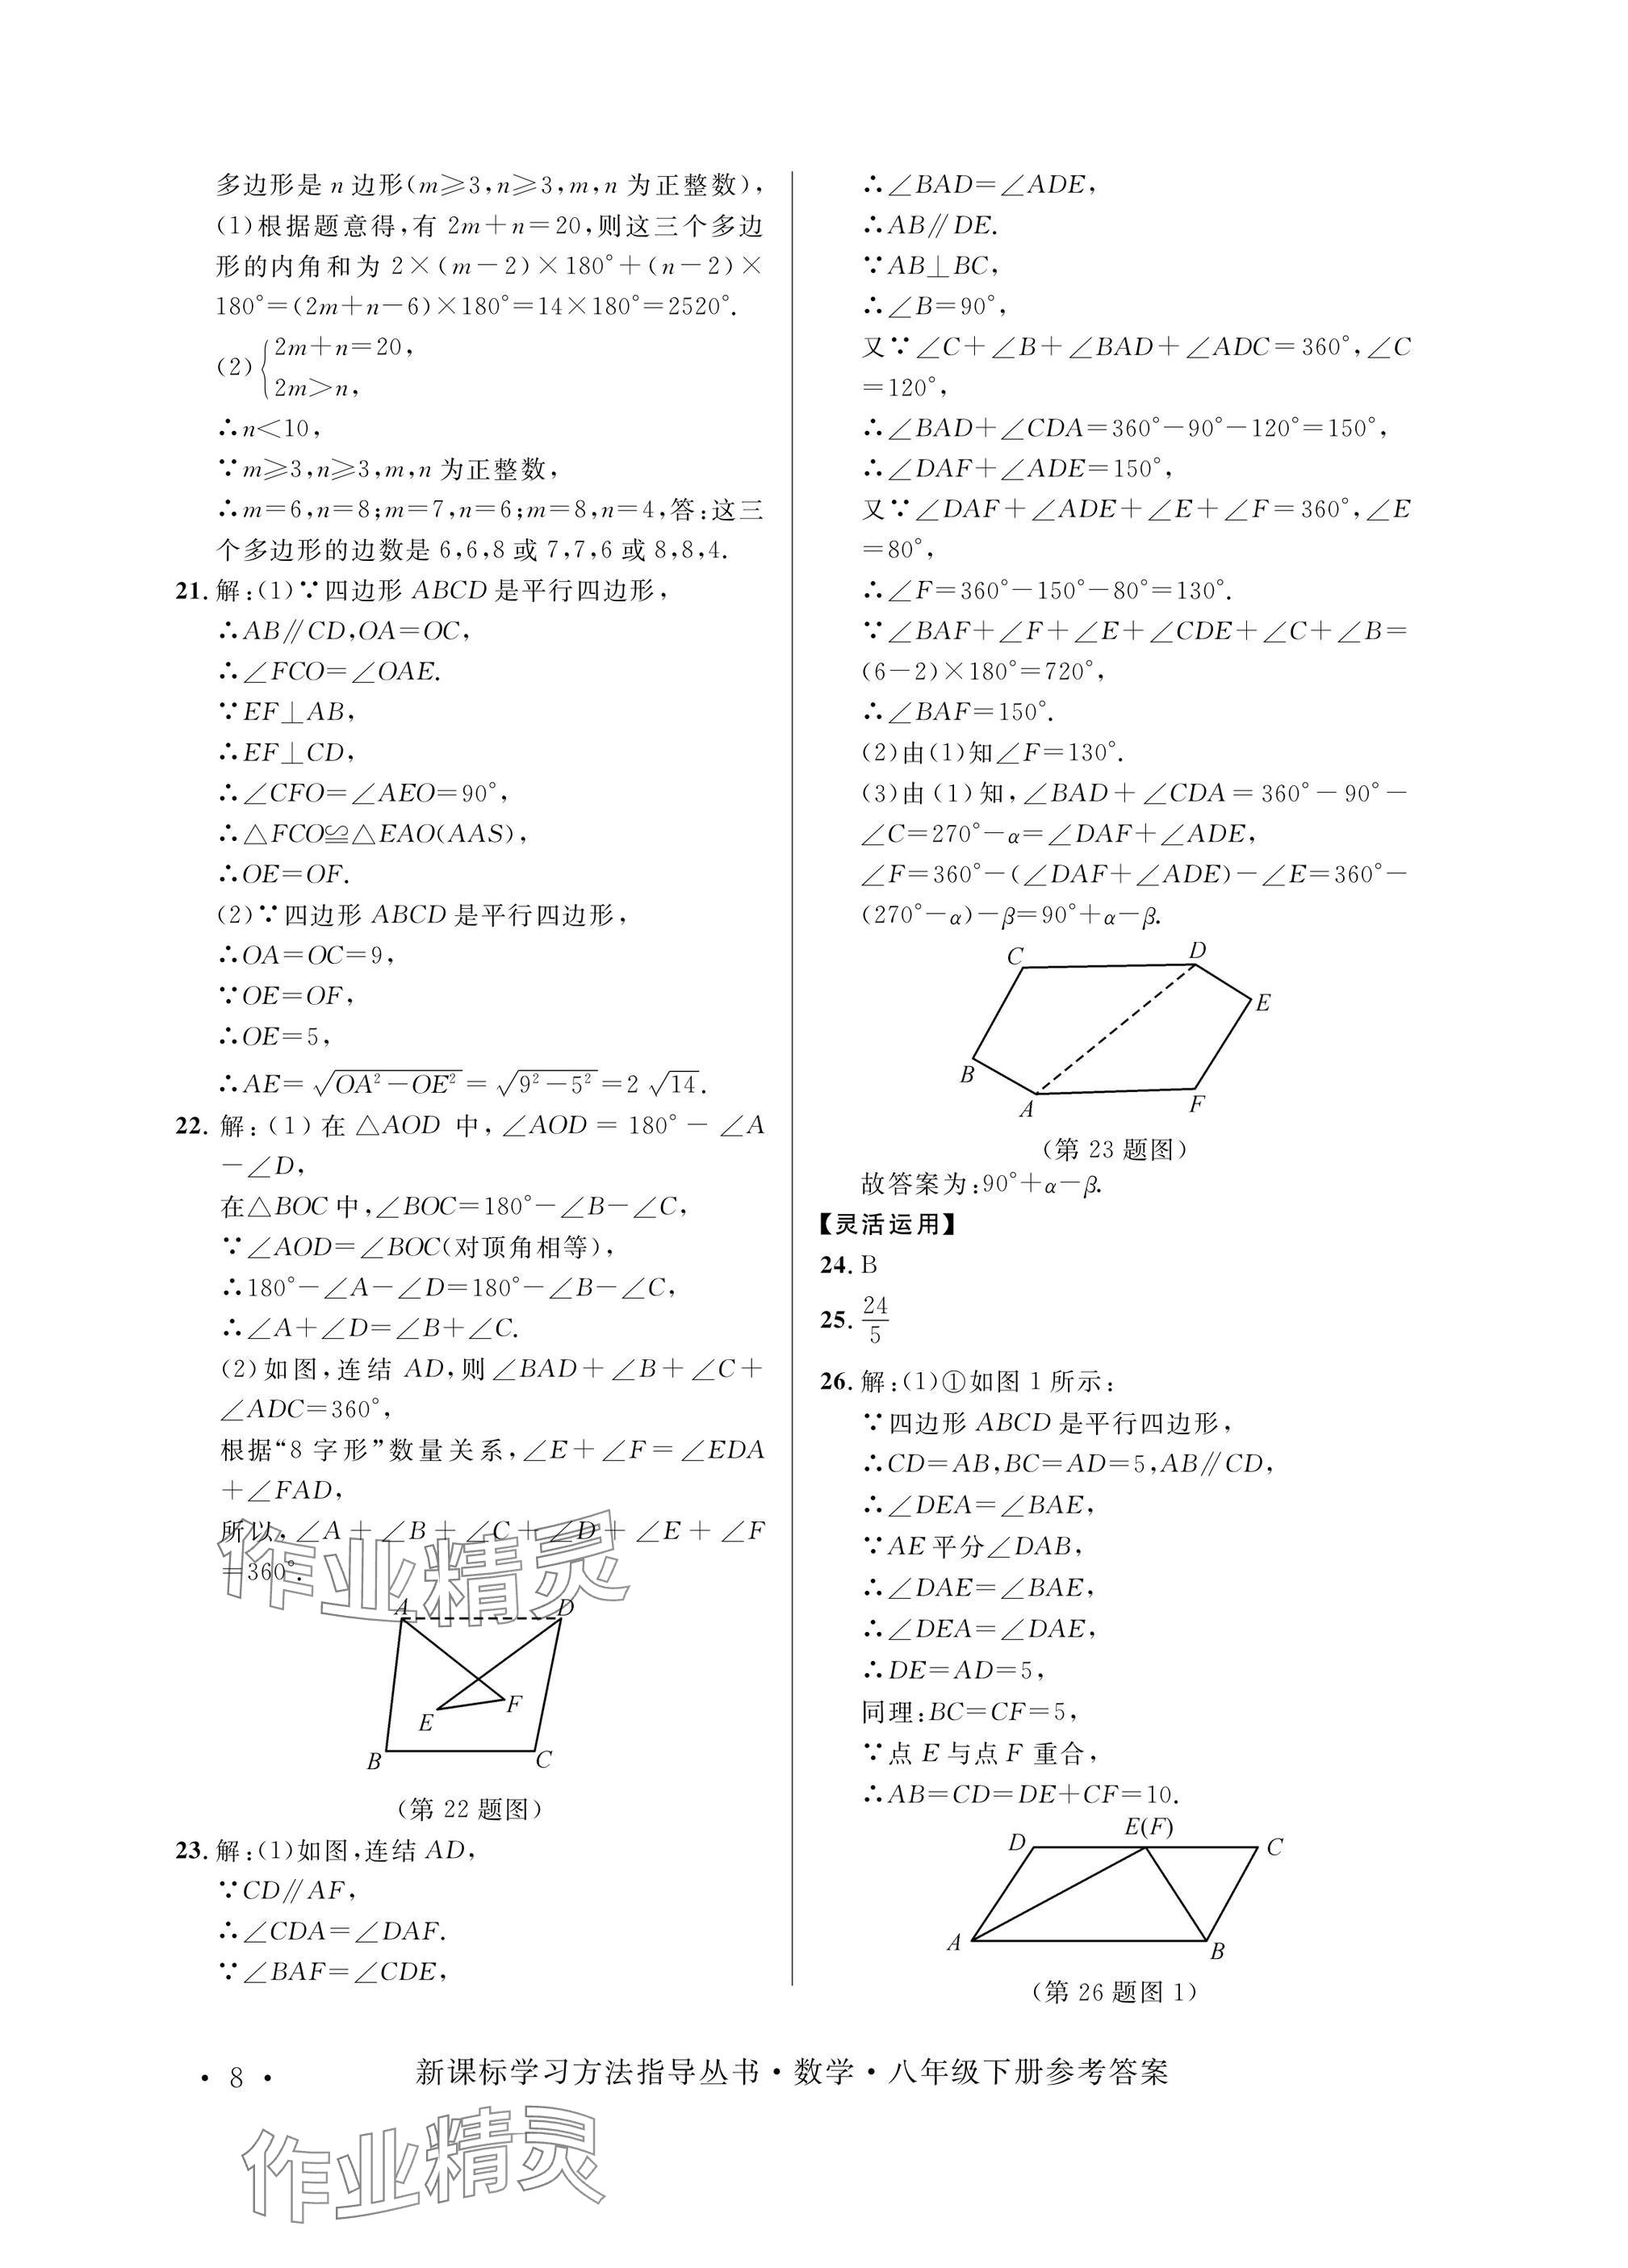 多边形是 n 边形(m⩾3,n⩾3,m,n 为正整数),
(1)根据题意得,有 2m+n=20,则这三个多边
形的内角和为 2×(m-2)×180°+(n-2)×
180°=(2m+n-6)×180°=14×180°=2520°.
(2){2m+n=20,
2m>n,
∴n<10,
∵m⩾3,n⩾3,m,n 为正整数,
∴m=6,n=8;m=7,n=6;m=8,n=4,答:这三
个多边形的边数是 6,6,8 或 7,7,6 或 8,8,4.
21. 解:(1)∵四边形 ABCD 是平行四边形,
∴AB∥CD,OA=OC,
∴∠FCO=∠OAE.
∵EF⊥AB,
∴EF⊥CD,
∴∠CFO=∠AEO=90°,
∴△FCO≌△EAO(AAS),
∴OE=OF.
(2)∵四边形 ABCD 是平行四边形,
∴OA=OC=9,
∵OE=OF,
∴OE=5,
∴AE=√(OA²-OE²)=√(9²-5²)=2√14.
22. 解:(1)在△AOD 中,∠AOD=180°-∠A
-∠D,
在△BOC 中,∠BOC=180°-∠B-∠C,
∵∠AOD=∠BOC(对顶角相等),
∴180°-∠A-∠D=180°-∠B-∠C,
∴∠A+∠D=∠B+∠C.
(2)如图,连结 AD,则∠BAD+∠B+∠C+
∠ADC=360°,
根据“8 字形”数量关系,∠E+∠F=∠EDA
+∠FAD,
所以,∠A+∠B+∠C+∠D+∠E+∠F
=360°.
作业精灵
A
D
F
E
B
C
(第 22 题图)
23. 解:(1)如图,连结 AD,
∵CD∥AF,
∴∠CDA=∠DAF.
∵∠BAF=∠CDE,
∴∠BAD=∠ADE,
∴AB∥DE.
∵AB⊥BC,
∴∠B=90°,
又∵∠C+∠B+∠BAD+∠ADC=360°,∠C
=120°,
∴∠BAD+∠CDA=360°-90°-120°=150°,
∴∠DAF+∠ADE=150°,
又∵∠DAF+∠ADE+∠E+∠F=360°,∠E
=80°,
∴∠F=360°-150°-80°=130°.
∵∠BAF+∠F+∠E+∠CDE+∠C+∠B=
(6-2)×180°=720°,
∴∠BAF=150°.
(2)由(1)知∠F=130°.
(3)由(1)知,∠BAD+∠CDA=360°-90°-
∠C=270°-α=∠DAF+∠ADE,
∠F=360°-(∠DAF+∠ADE)-∠E=360°-
(270°-α)-β=90°+α-β.
C
D
E
B
A
F
(第 23 题图)
故答案为:90°+α-β.
【灵活运用】
24. B
25. 24/5
26. 解:(1)①如图 1 所示:
∵四边形 ABCD 是平行四边形,
∴CD=AB,BC=AD=5,AB∥CD,
∴∠DEA=∠BAE,
∵AE 平分∠DAB,
∴∠DAE=∠BAE,
∴∠DEA=∠DAE,
∴DE=AD=5,
同理:BC=CF=5,
∵点 E 与点 F 重合,
∴AB=CD=DE+CF=10.
D
E(F)
C
A
B
(第 26 题图 1)
· 8 ·
新课标学习方法指导丛书·数学·八年级下册参考答案
作业精灵